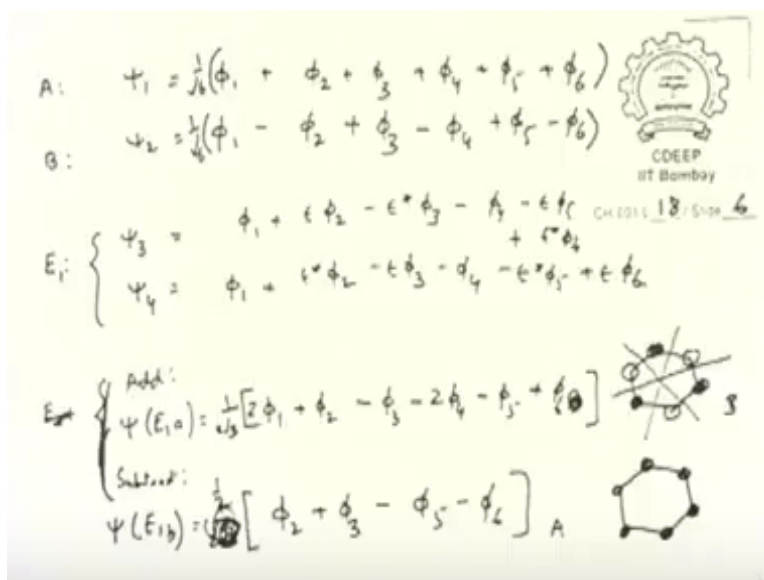 A: ψ₁ = 1/√6 (ϕ₁ + ϕ₂ + ϕ₃ + ϕ₄ + ϕ₅ + ϕ₆)
B: ψ₂ = 1/√6 (ϕ₁ - ϕ₂ + ϕ₃ - ϕ₄ + ϕ₅ - ϕ₆)
CDEEP
IIT Bombay
18 / Slide 6
E₁: ψ₃ = ϕ₁ + ϵ ϕ₂ - ϵ* ϕ₃ - ϕ₄ - ϵ ϕ₅
+ ϵ* ϕ₆
ψ₄ = ϕ₁ + ϵ* ϕ₂ - ϵ ϕ₃ - ϕ₄ - ϵ* ϕ₅ + ϵ ϕ₆
Add:
ψ(E₁a) = [2ϕ₁ + ϕ₂ - ϕ₃ - 2ϕ₄ - ϕ₅ + ϕ₆]
B
Subtract:
ψ(E₁b) = 1/2 [ϕ₂ + ϕ₃ - ϕ₅ - ϕ₆]
A